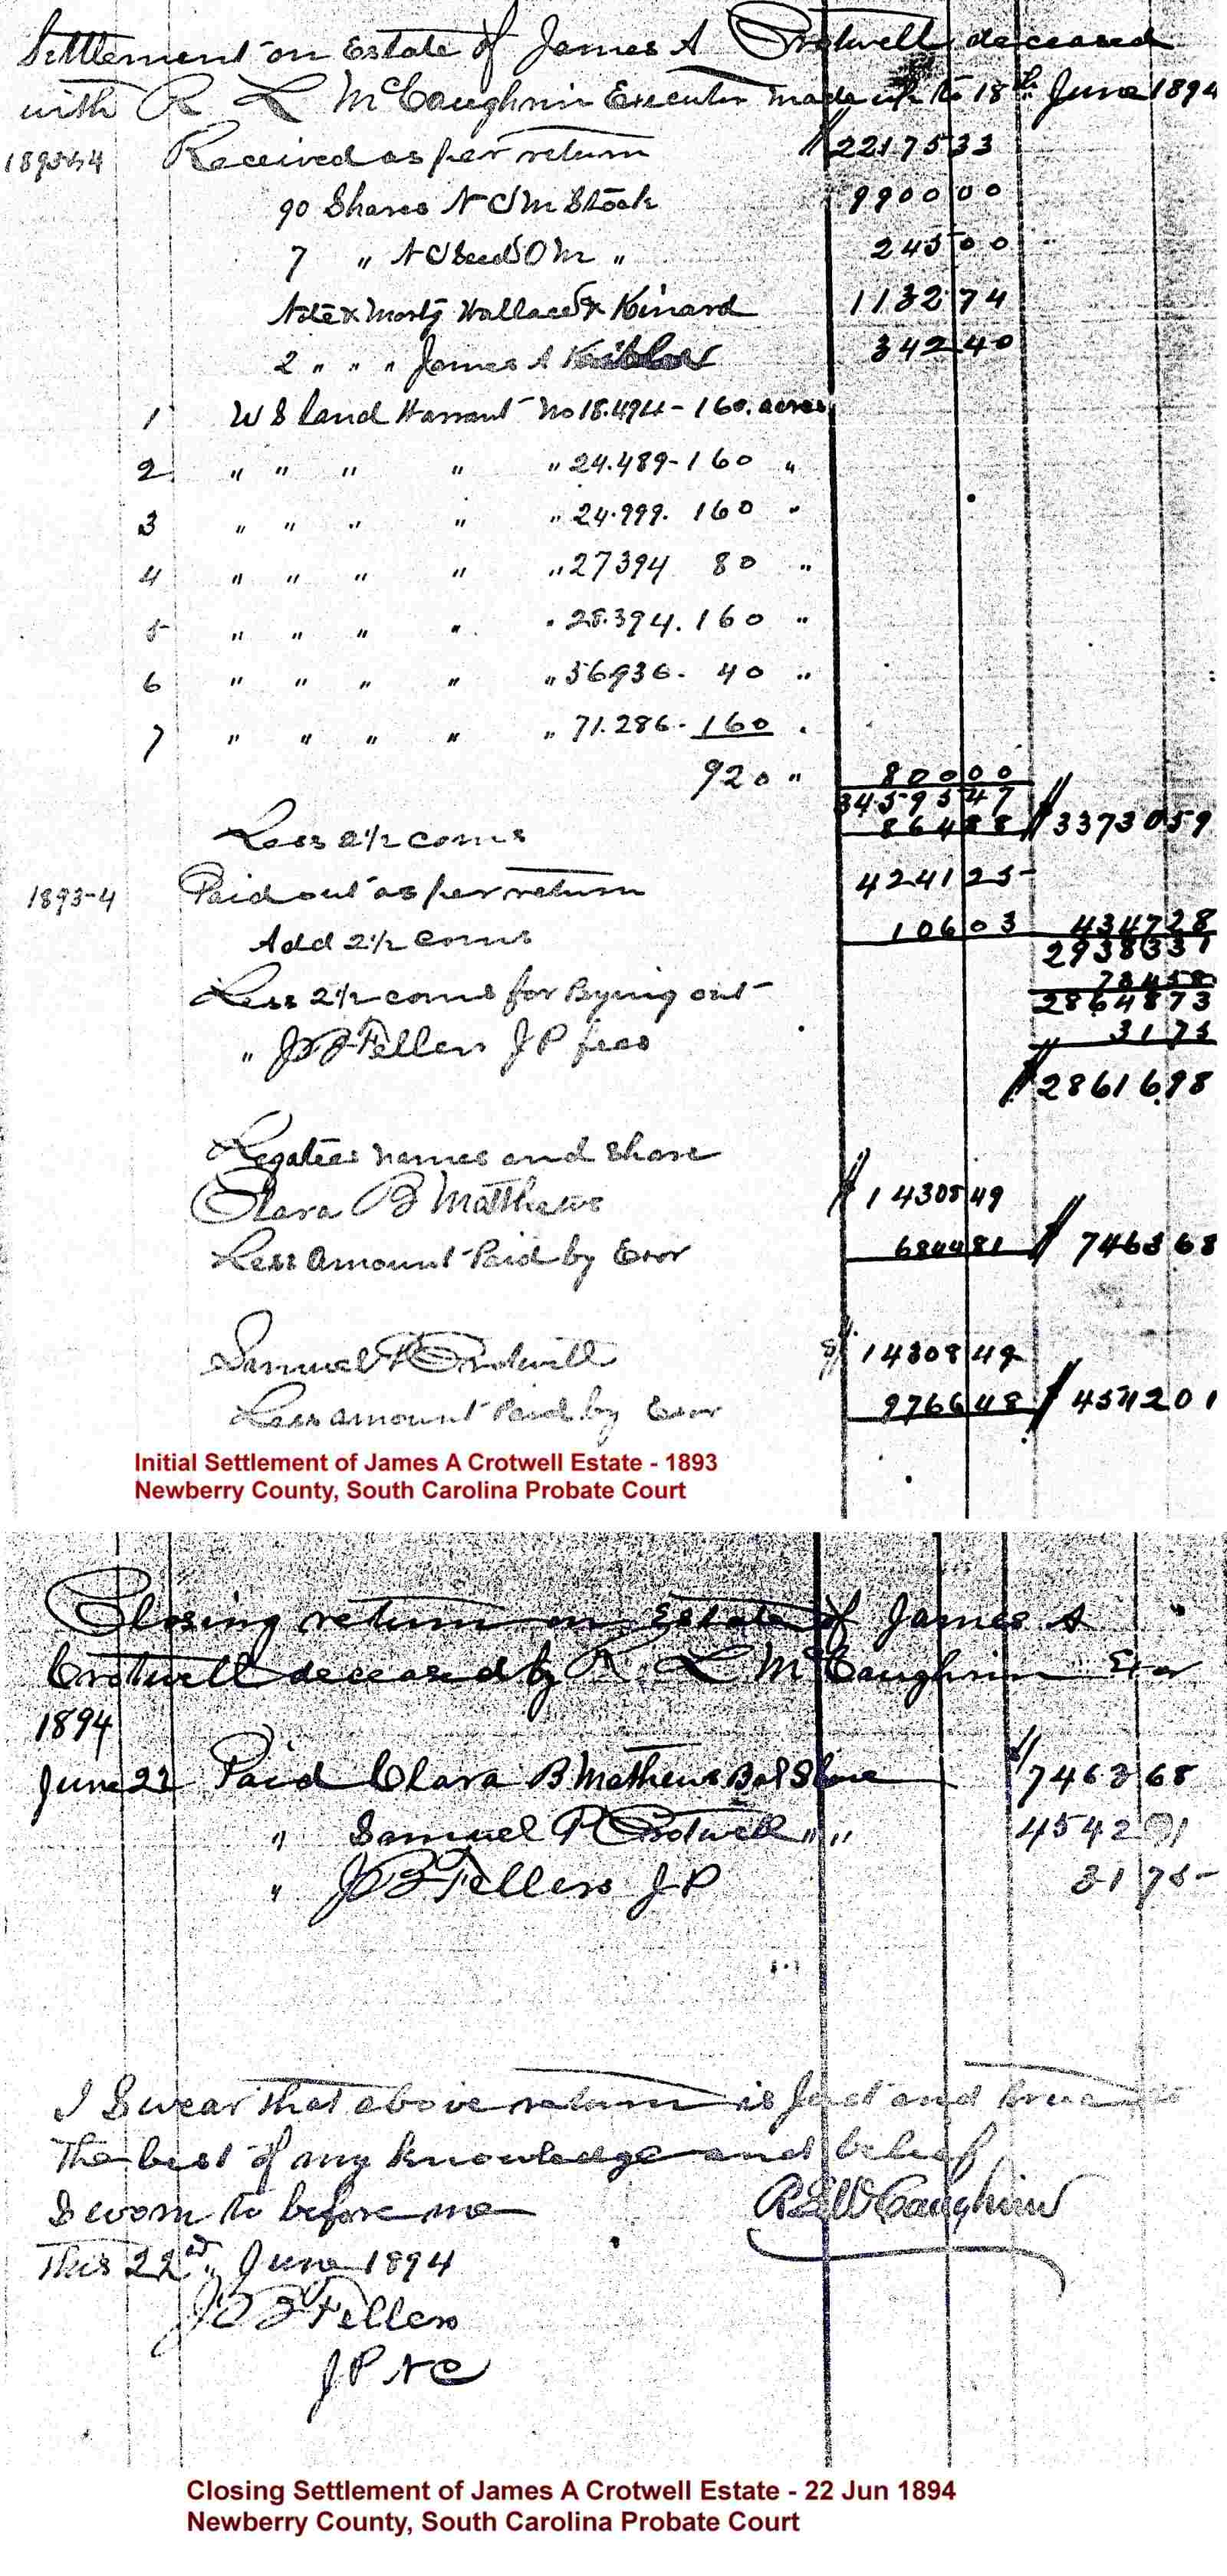 Settlement on Estate of James A Crotwell deceased
with R L McCaughrin Executor made up to 18th June 1894
1893&4 Received as per return $22175 33
90 Shares N C M Stock 9900 00
7 " N C Seed O M " 245 00
Note & Mortg Wallace & Kinard 1132 74
2 " " " James A 342 40
1 U S Land Warrant No 18.494 - 160. acres
2 " " " " " 24.489 - 160 "
3 " " " " " 24.999. 160 "
4 " " " " " 27394 80 "
5 " " " " " 28.394. 160 "
6 " " " " " 56936 - 40 "
7 " " " " " 71.286 - 160 "
920 " 800 00
34595 47
Less 2 1/2 coms 864 88 $33730 59
1893-4 Paid out as per return 4241 25
Add 2 1/2 coms 106 03 4347 28
29383 31
Less 2 1/2 coms for Bying out 734 58
28648 73
" J B Fellers J P fees 31 75
$28616 98
Legatees names and Share
Clara B Matthews $14308 49
Less Amount Paid by Eror 6844 81 $7463 68
Samuel P Crotwell $14308 49
Less amount Paid by Eror 9766 48 $4542 01
Initial Settlement of James A Crotwell Estate - 1893
Newberry County, South Carolina Probate Court
Closing return on Estate of James A
Crotwell deceased by R L McCaughrin Exor
1894
June 22 Paid Clara B Mathews Bal Share $7463 68
" Samuel P Crotwell " " 4542 01
" J B Fellers J P 31 75
I Swear that above return is Just and true to
the best of my knowledge and beleaf
Sworn to before me R L McCaughrin
This 22nd June 1894
J B Fellers
J P N C
Closing Settlement of James A Crotwell Estate - 22 Jun 1894
Newberry County, South Carolina Probate Court